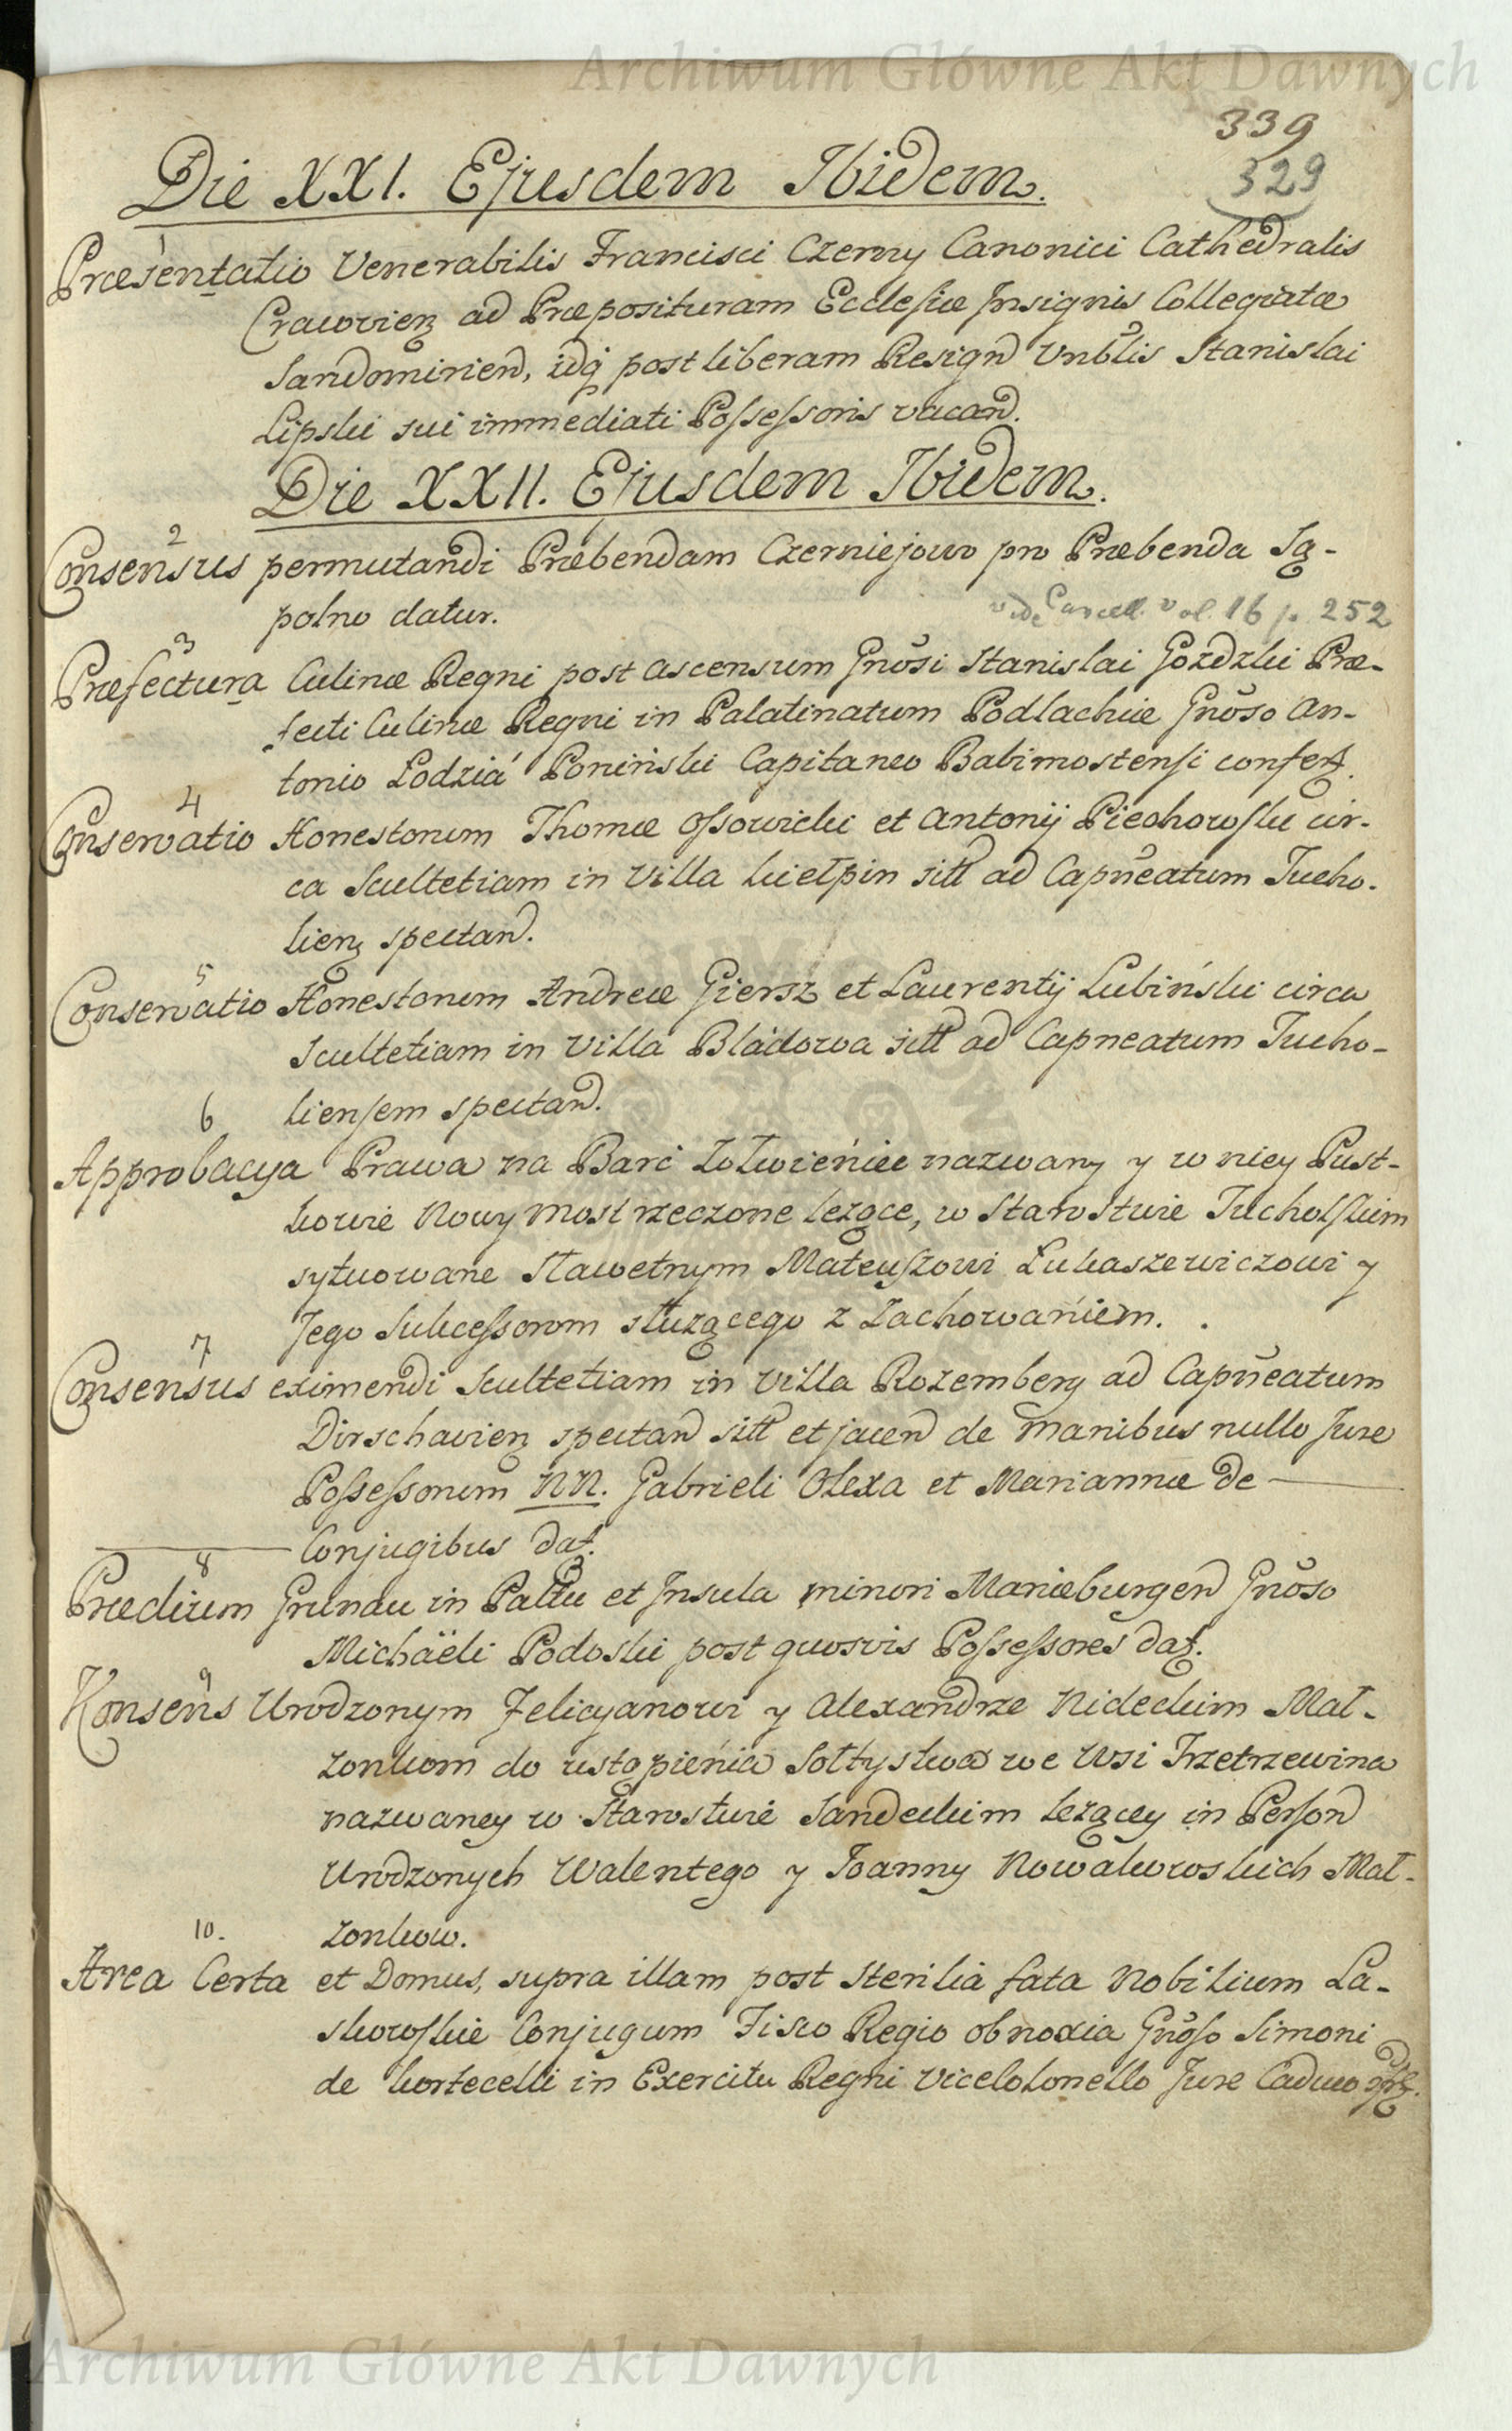 Archiwum Główne Akt Dawnych
339
329
Die XXI. Ejusdem Ibidem.
1
Præsentatio Venerabilis Francisci Czerny Canonici Cathedralis
Cracovien ad Præposituram Ecclesiæ Insignis Collegiatæ
Sandomirien, idq post liberam Resign Vnblis Stanislai
Lipski sui immediati Possessoris vacand.
Die XXII. Ejusdem Ibidem.
2
Consensus permutandi Præbendam Czerniejow pro Præbenda Są-
polno datur.
vide Cancell. vol. 16 p. 252
3
Præfectura Culinæ Regni post ascensum Gnosi Stanislai Gozdzki Præ-
fecti Culinæ Regni in Palatinatum Podlachiæ Gnoso An-
tonio Łodzia Poniński Capitaneo Babimostensi confert.
4
Conservatio Honestorum Thomæ Ossowicki et Antonij Piechowski cir-
ca Scultetiam in Villa Kiełpin sitt ad Capneatum Tucho-
lien spectand.
5
Conservatio Honestorum Andreæ Giersz et Laurentij Lubiński circa
Scultetiam in Villa Bladowa sitt ad Capneatum Tucho-
liensem spectand.
6
Approbacya Prawa na Barć Zołwieńiec nazwany y w niey Pust-
kowie Nowy Most rzeczone leżące, w Starostwie Tucholskim
sytuowane Sławetnym Mateuszowi Łukaszewiczowi y
Jego Sukcessorom służącego z Zachowaniem.
7
Consensus eximendi Scultetiam in Villa Rozemberg ad Capneatum
Dirschavien spectand sitt et jacen de manibus nullo Jure
Possessorum NN. Gabrieli Olexa et Mariannæ de
Conjugibus dat.
8
Prædium Grunau in Palttu et Insula minori Marieburgen Gnoso
Michäeli Podoski post quosvis Possessores dat.
9
Konsens Urodzonym Felicyanowi y Alexandrze Nideckim Mał-
zonkom do ustąpienia Sołtystwa we Wsi Trzetrzewina
nazwaney w Starostwie Sandeckim leżącey in Person
Urodzonych Walentego y Joanny Nowakowskich Mał-
zonkow.
10.
Area Certa et Domus, supra illam post sterilia fata Nobilium La-
skowskie Conjugum Fisco Regio obnoxia Gnoso Simoni
de Kortecelli in Exercitu Regni Vicekolonello Jure Caduco
Archiwum Główne Akt Dawnych